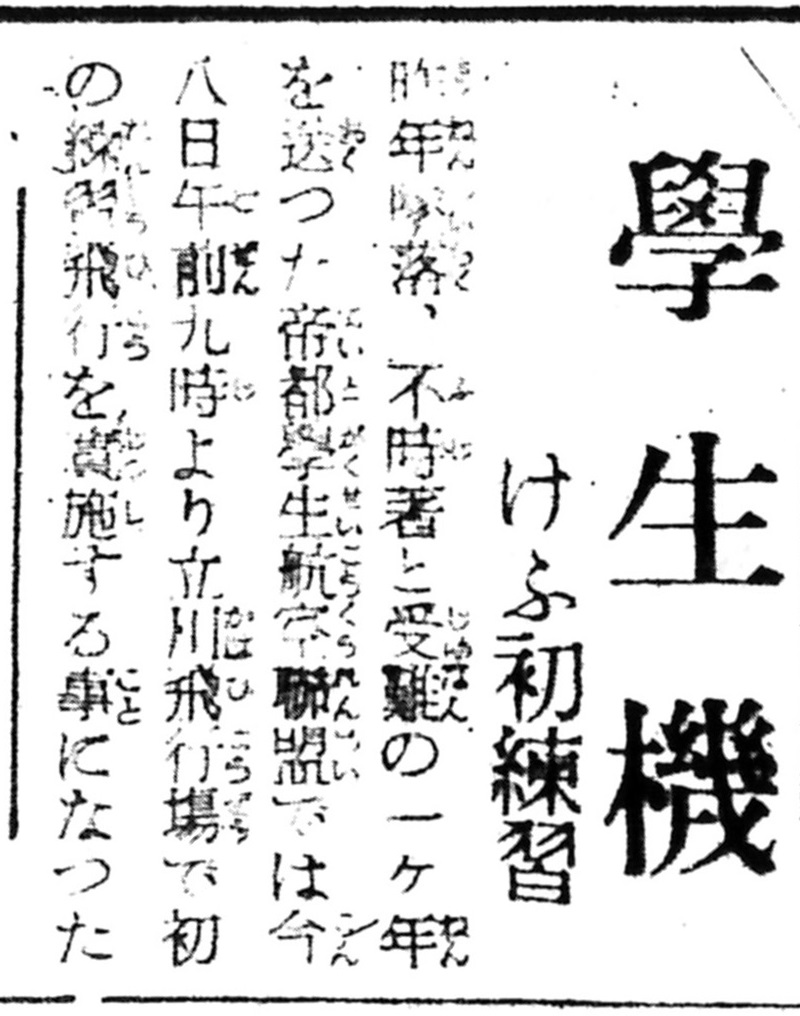 學生機
けふ初練習
昨年墜落、不時著と受難の一ケ年
を送つた帝都學生航空聯盟では今
八日午前九時より立川飛行場で初
の練習飛行を實施する事になつた